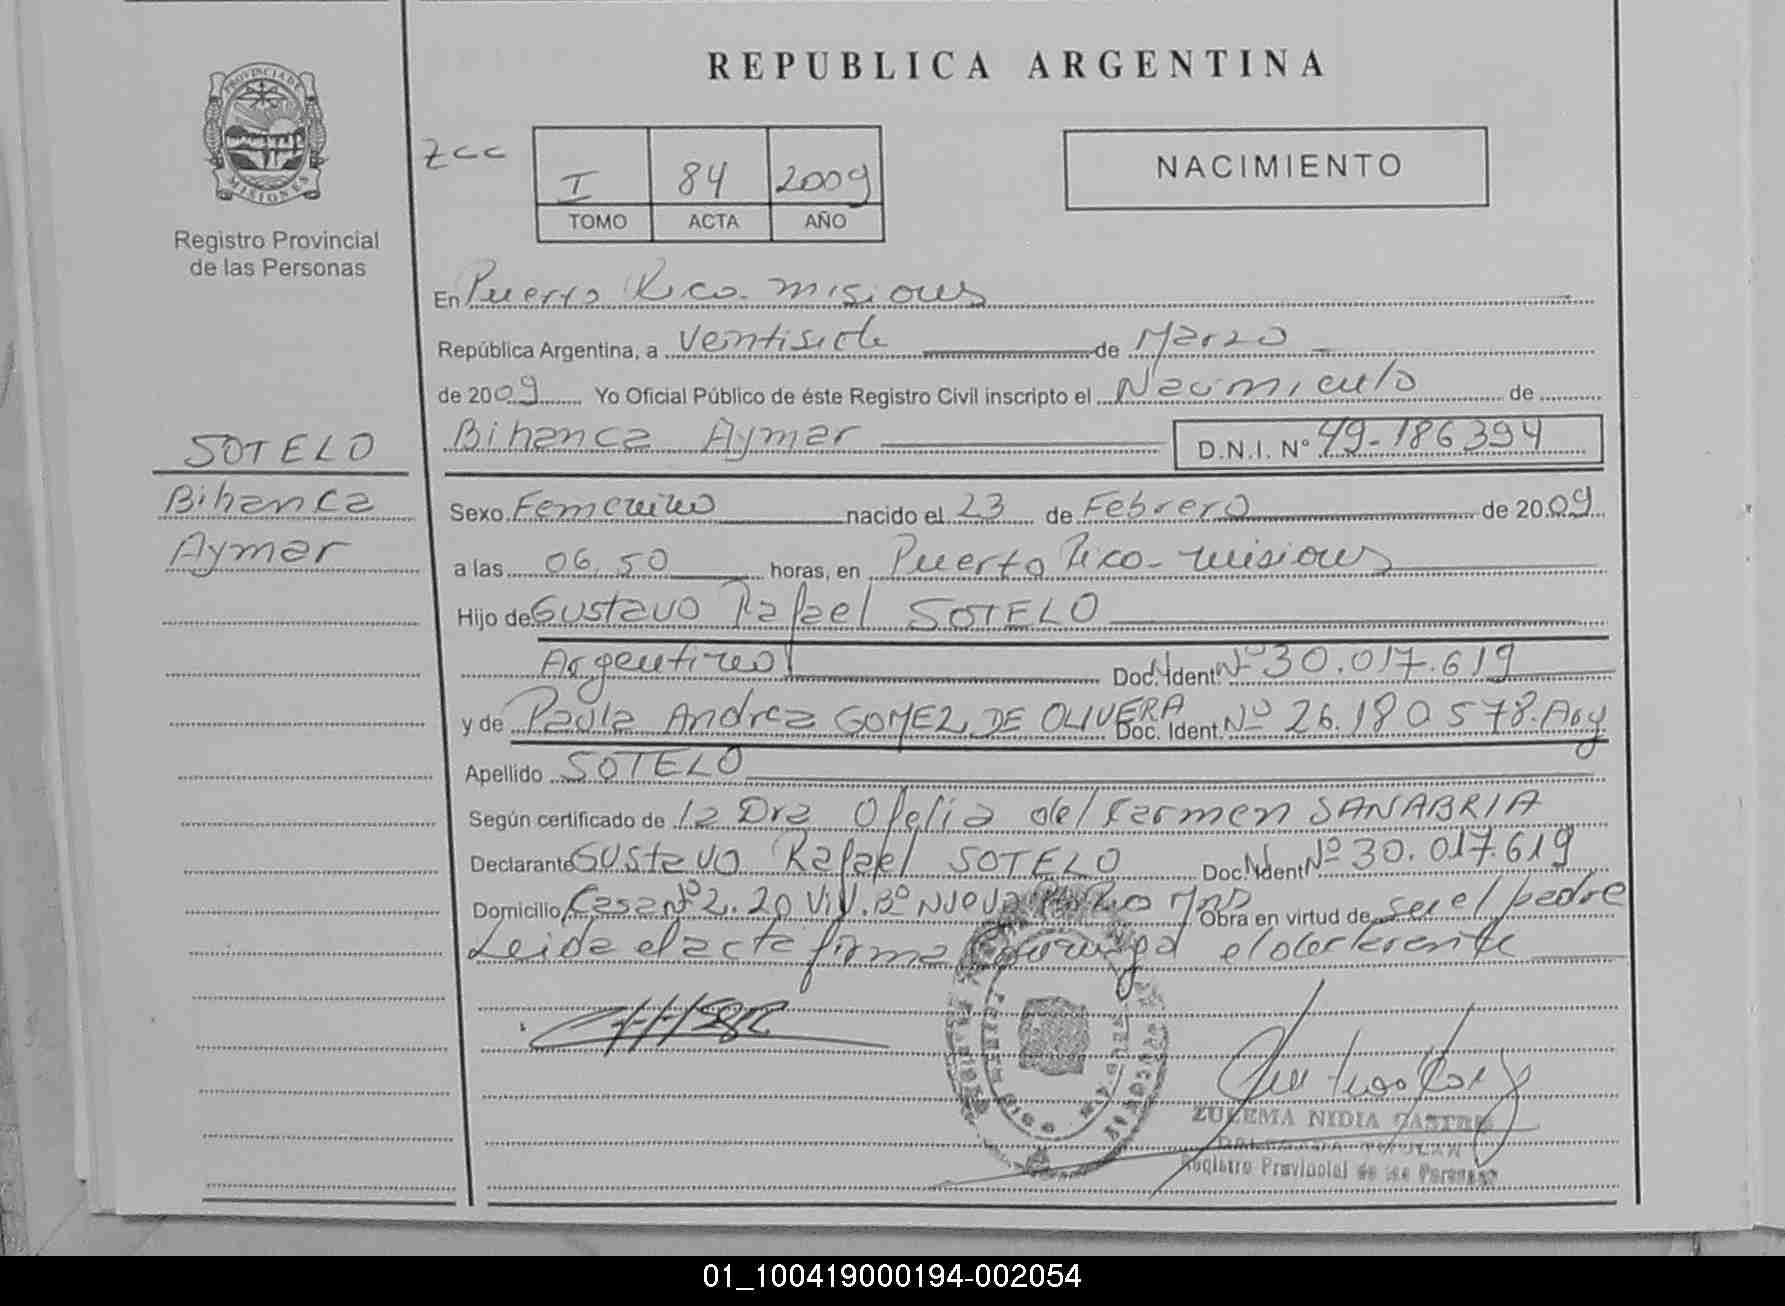 REPUBLICA ARGENTINA
PROVINCIA DE
MISIONES
Registro Provincial
de las Personas
zcc
I 84 2009
TOMO ACTA AÑO
NACIMIENTO
En Puerto Rico - misiones
República Argentina, a Veintisiete de Marzo
de 2009 Yo Oficial Público de éste Registro Civil inscripto el Nacimiento de
Bihanca Aymar D.N.I. N° 49-186394
SOTELO
Bihanca
Aymar
Sexo Femenino nacido el 23 de Febrero de 2009
a las 06,50 horas, en Puerto Rico - misiones
Hijo de Gustavo Rafael SOTELO
Argentino Doc. Ident. Nº 30.017.619
y de Paula Andrea GOMEZ DE OLIVERA Doc. Ident. Nº 26.180578. Arg
Apellido SOTELO
Según certificado de la Dra Ofelia del Carmen SANABRIA
Declarante Gustavo Rafael SOTELO Doc. Ident Nº 30.017.619
Domicilio Casa Nº 2. 20 Viv. Bº Nueva Obra en virtud de ser el padre
Leida el acta firma el declarante
ZULEMA NIDIA CASTRO
Registro Provincial de las Personas
01_100419000194-002054